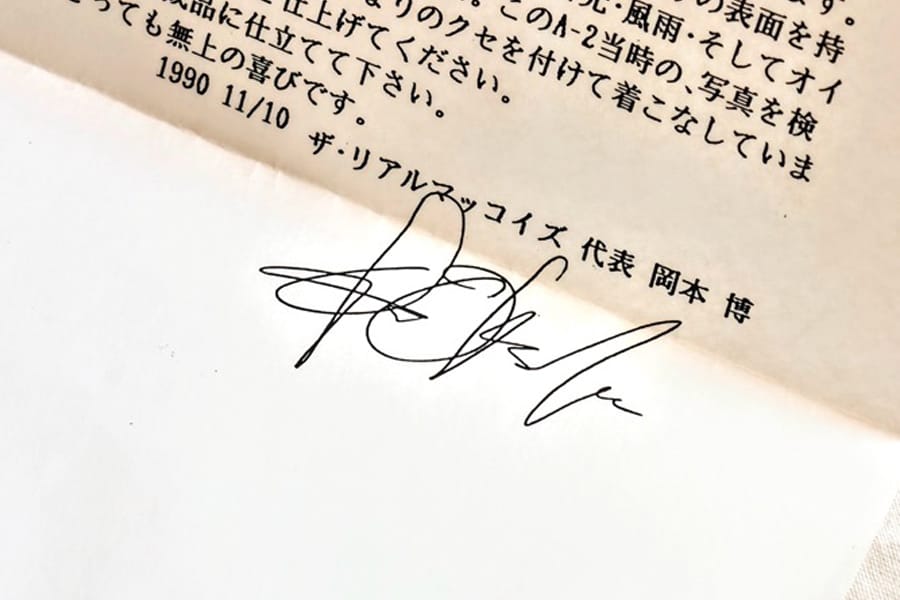 す。
の表面を持
光・風雨・そしてオイ
。このA-2当時の、写真を検
なりのクセを付けて着こなしていま
仕上げてください。
成品に仕立てて下さい。
とっても無上の喜びです。
1990 11/10
ザ・リアルマッコイズ 代表 岡本 博